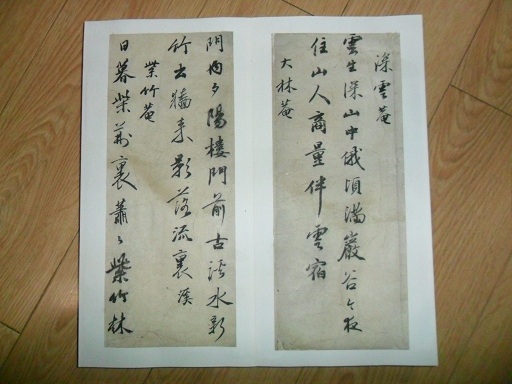 深雲菴
雲生深山中俄頃滿巖谷今夜
住山人商量伴雲宿
大林菴
門向夕陽樓門前古水新
竹出牆來影落流裏溪
紫竹菴
日暮柴荊裏蕭々紫竹林